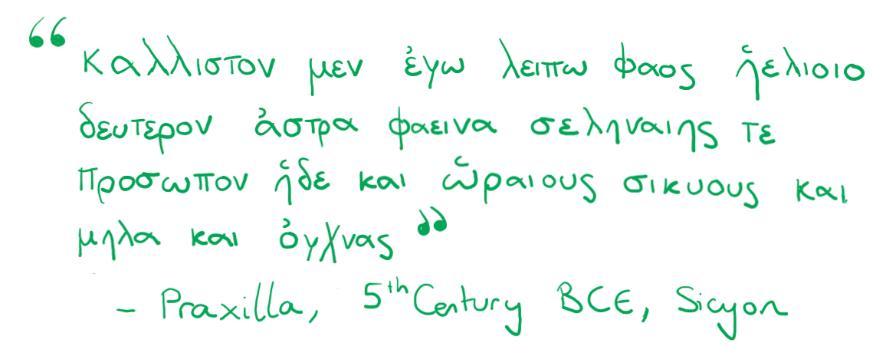 “ καλλιστον μεν ἐγω λειπω φαος ἠελιοιο
δευτερον ἀστρα φαεινα σεληναιης τε
προσωπον ἠδε και ὡραιους σικυους και
μηλα και ὀγχνας ”
– Praxilla, 5th Century BCE, Sicyon